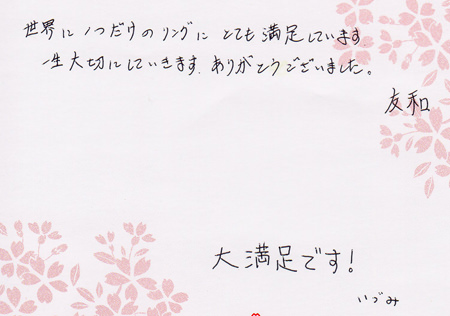 世界に1つだけのリングにとても満足しています.
一生大切にしていきます.ありがとうございました。
友和
大満足です!
いづみ